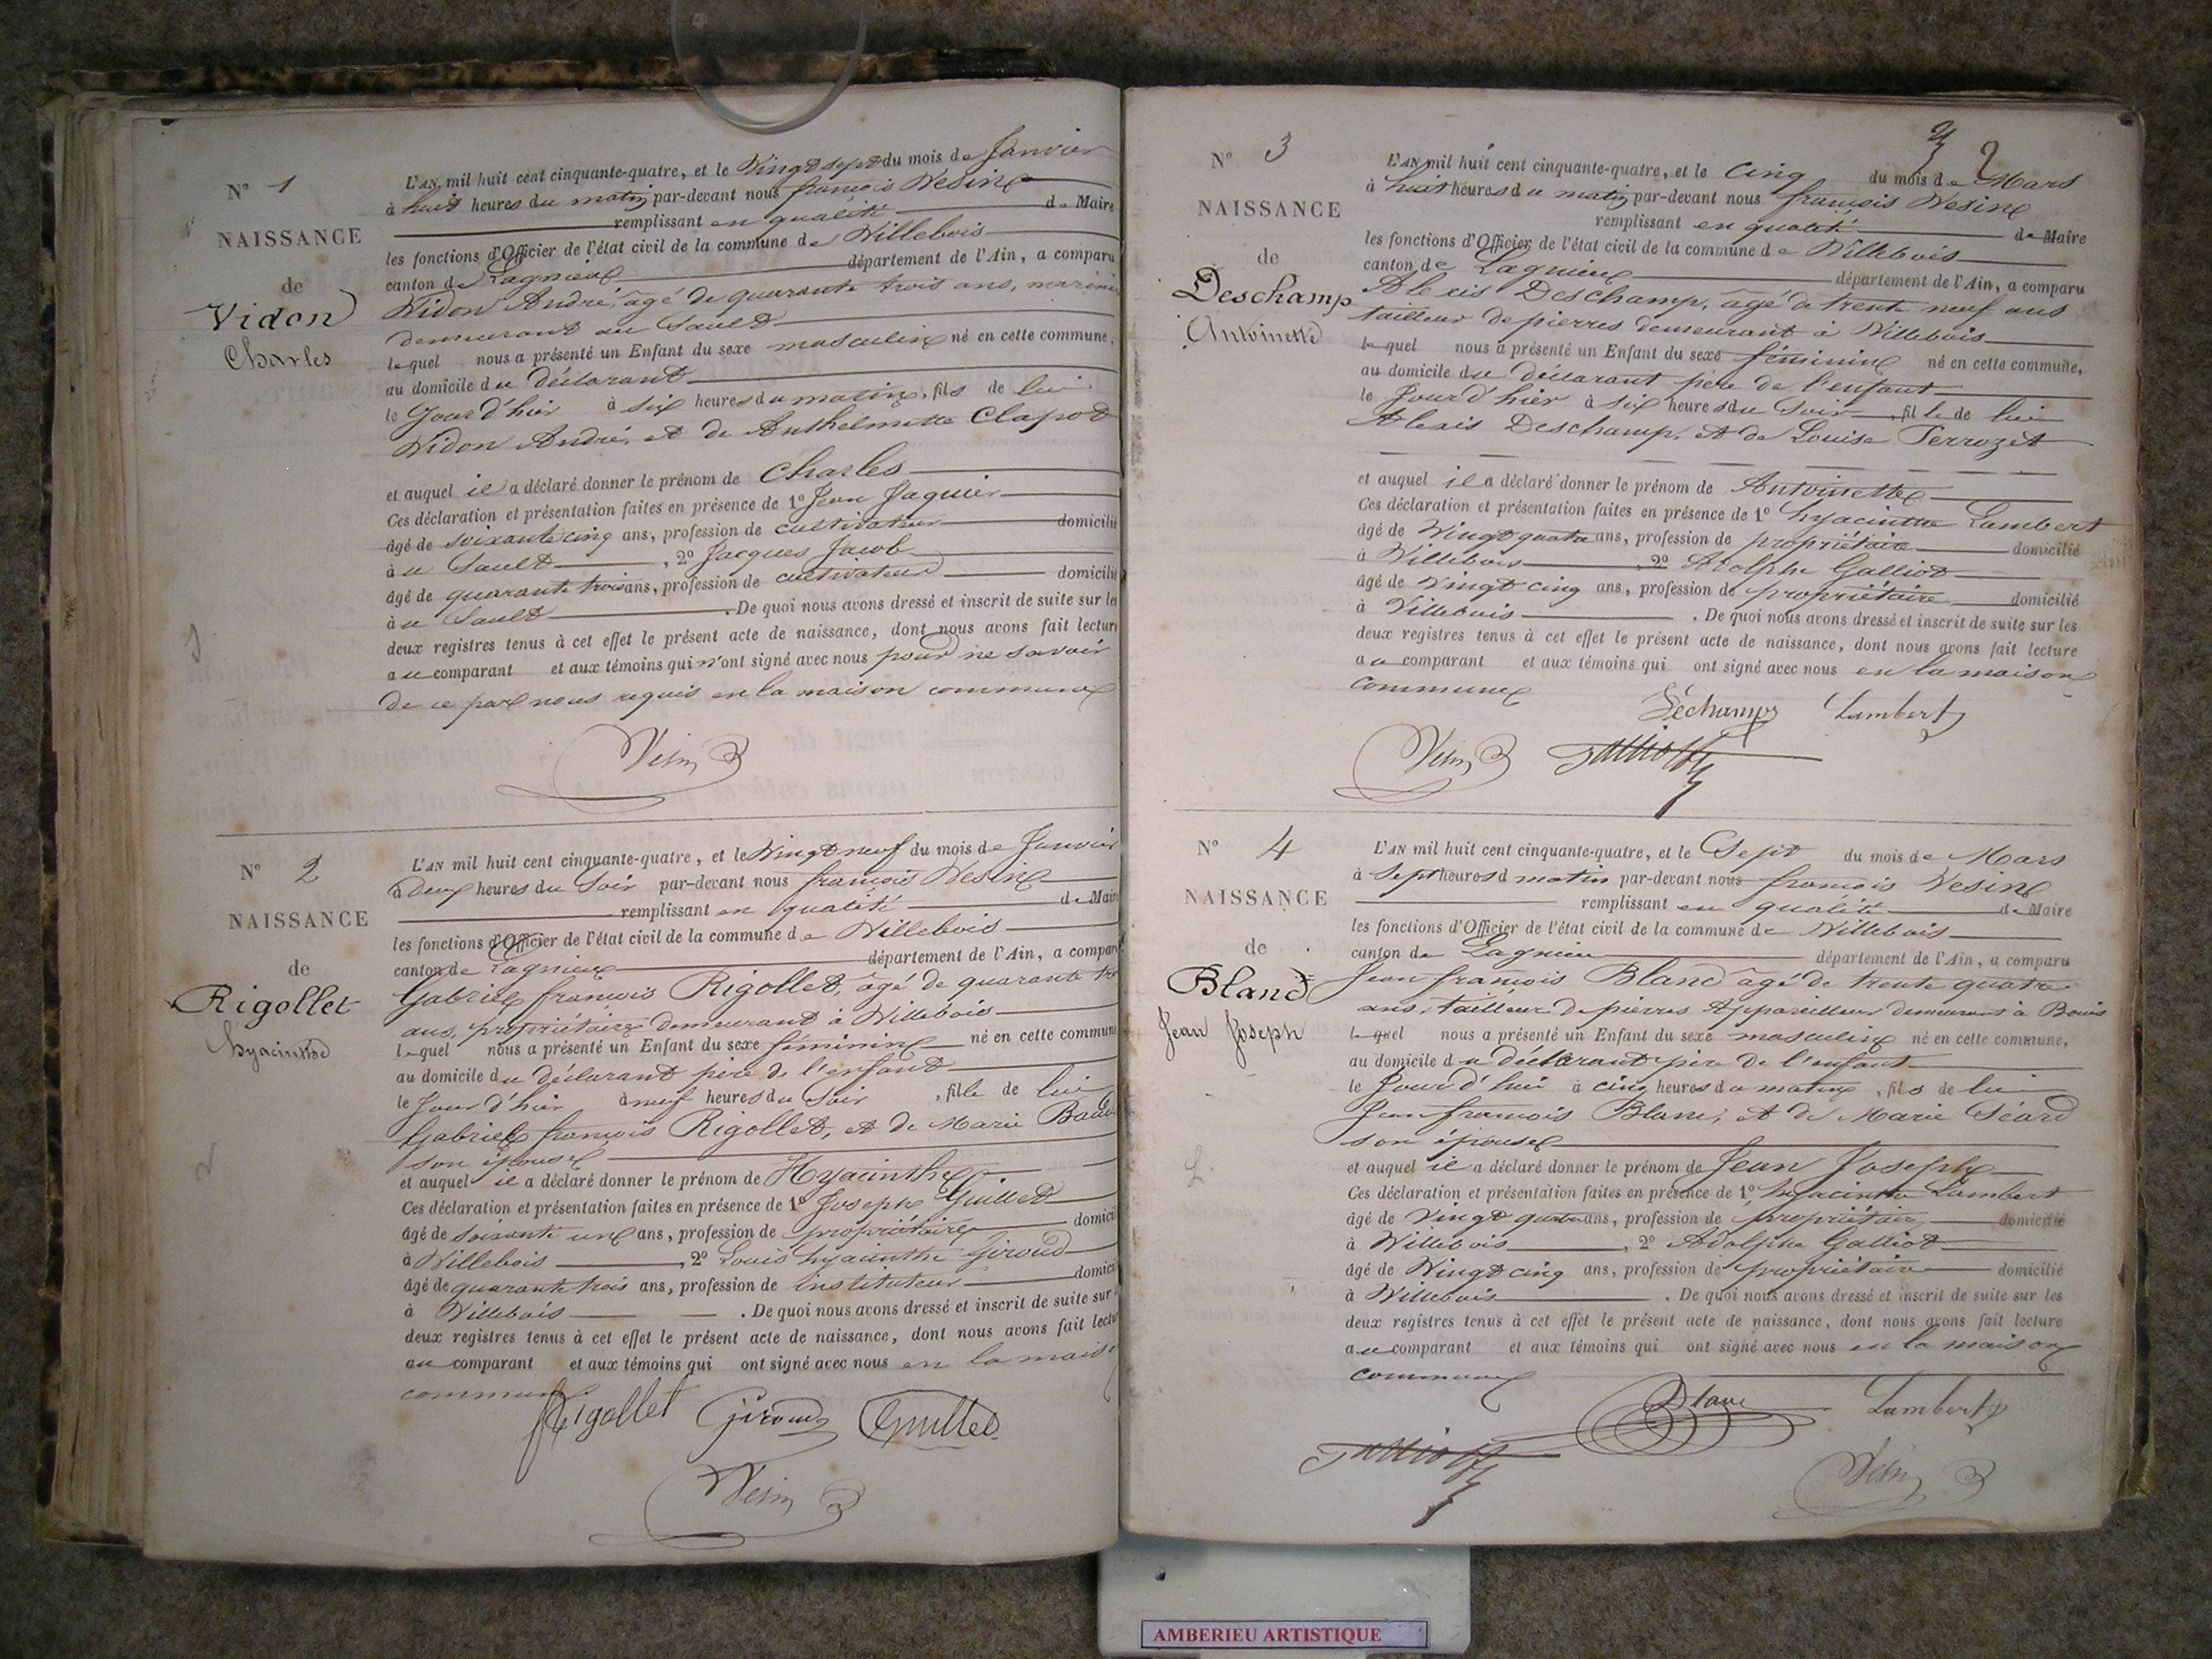 N° 1
NAISSANCE
de
Vidon
Charles
L'AN mil huit cent cinquante-quatre, et le Vingt sept du mois de Janvier
à huit heures du matin par-devant nous françois Vesin
remplissant en qualité de Maire
les fonctions d'Officier de l'état civil de la commune de Villebois
canton de Lagnieu département de l'Ain, a comparu
Vidon André, âgé de quarante trois ans, marinier
demeurant au Sault
lequel nous a présenté un Enfant du sexe masculin né en cette commune,
au domicile du déclarant
le Jour d'hier à six heures du matin, fils de lui
Vidon André, et de Anthelmette Clapot
et auquel il a déclaré donner le prénom de Charles
Ces déclaration et présentation faites en présence de 1° Jean Jaquier
âgé de soixante cinq ans, profession de cultivateur domicilié
à u Sault, 2° Jacques Jacob
âgé de quarante trois ans, profession de cultivateur domicilié
à u Sault. De quoi nous avons dressé et inscrit de suite sur les
deux registres tenus à cet effet le présent acte de naissance, dont nous avons fait lecture
au comparant et aux témoins qui n'ont signé avec nous pour ne savoir
de ce par nous requis en la maison commune
Vesin
N° 2
NAISSANCE
de
Rigollet
hyacinthe
L'AN mil huit cent cinquante-quatre, et le Vingt neuf du mois de Janvier
à deux heures du Soir par-devant nous françois Vesin
remplissant en qualité de Maire
les fonctions d'Officier de l'état civil de la commune de Villebois
canton de Lagnieu département de l'Ain, a comparu
Gabriel françois Rigollet, âgé de quarante
ans, propriétaire demeurant à Villebois
lequel nous a présenté un Enfant du sexe féminin né en cette commune
au domicile du déclarant père de l'enfant
le Jour d'hier à neuf heures du Soir, fille de lui
Gabriel françois Rigollet, et de Marie
son épouse
et auquel il a déclaré donner le prénom de Hyacinthe
Ces déclaration et présentation faites en présence de 1° Joseph Guillet
âgé de soixante un ans, profession de propriétaire domici
à Villebois, 2° Louis hyacinthe Giroud
âgé de quarante trois ans, profession de instituteur domici
à Villebois. De quoi nous avons dressé et inscrit de suite sur
deux registres tenus à cet effet le présent acte de naissance, dont nous avons fait lectu
au comparant et aux témoins qui ont signé avec nous en la maiso
commune
Rigollet Giroud Guillet
Vesin
2
N° 3
NAISSANCE
de
Deschamp
Antoinette
L'AN mil huit cent cinquante-quatre, et le Cinq du mois de Mars
à huit heures du matin par-devant nous françois Vesin
remplissant en qualité de Maire
les fonctions d'Officier de l'état civil de la commune de Villebois
canton de Lagnieu département de l'Ain, a comparu
Alexis Deschamp, âgé de trente neuf ans
tailleur de pierres demeurant à Villebois
lequel nous a présenté un Enfant du sexe féminin né en cette commune,
au domicile du déclarant père de l'enfant
le Jour d'hier à six heures du Soir, fille de lui
Alexis Deschamp, et de Louise Perrozet
et auquel il a déclaré donner le prénom de Antoinette
Ces déclaration et présentation faites en présence de 1° hyacinthe Lambert
âgé de Vingt quatre ans, profession de propriétaire domicilié
à Villebois, 2° Adolphe Galliot
âgé de Vingt cinq ans, profession de propriétaire domicilié
à Villebois. De quoi nous avons dressé et inscrit de suite sur les
deux registres tenus à cet effet le présent acte de naissance, dont nous avons fait lecture
au comparant et aux témoins qui ont signé avec nous en la maison
commune
Déchamp Lambert
Vesin Galliot
N° 4
NAISSANCE
de
Blanc
Jean Joseph
L'AN mil huit cent cinquante-quatre, et le Sept du mois de Mars
à Sept heures d matin par-devant nous françois Vesin
remplissant en qualité de Maire
les fonctions d'Officier de l'état civil de la commune de Villebois
canton de Lagnieu département de l'Ain, a comparu
Jean françois Blanc âgé de trente quatre
ans, tailleur de pierres Appareilleur demeurant à Bouis
lequel nous a présenté un Enfant du sexe masculin né en cette commune,
au domicile du déclarant père de l'enfant
le Jour d'hui à cinq heures du matin, fils de lui
Jean françois Blanc, et de Marie Séard
son épouse
et auquel il a déclaré donner le prénom de Jean Joseph
Ces déclaration et présentation faites en présence de 1° hyacinthe Lambert
âgé de Vingt quatre ans, profession de propriétaire domicilié
à Villebois, 2° Adolphe Galliot
âgé de Vingt cinq ans, profession de propriétaire domicilié
à Villebois. De quoi nous avons dressé et inscrit de suite sur les
deux registres tenus à cet effet le présent acte de naissance, dont nous avons fait lecture
au comparant et aux témoins qui ont signé avec nous en la maison
commune
Blanc Lambert
Galliot Vesin
AMBERIEU ARTISTIQUE